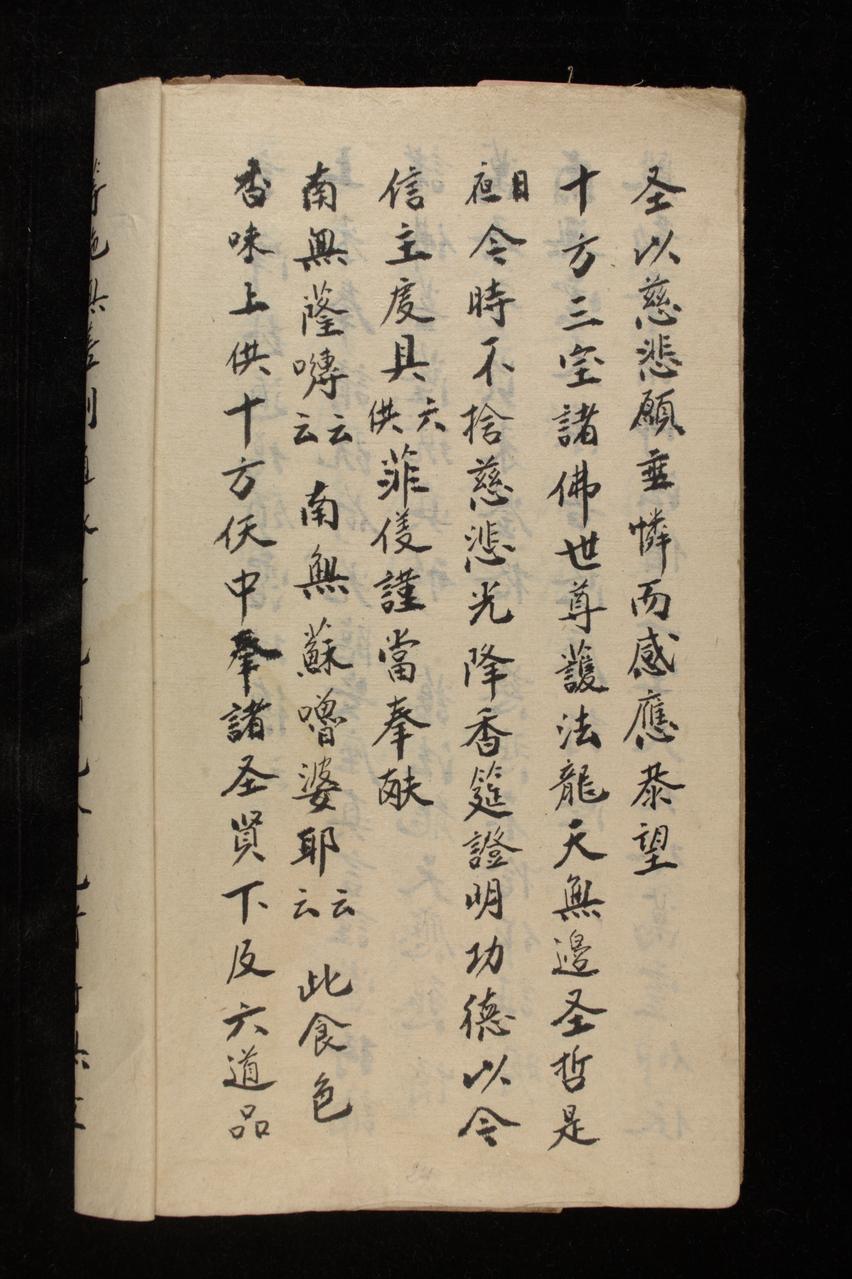 圣以慈悲願垂憐而感應恭望
十方三宝諸佛世尊護法龍天無邊圣哲是
日夜今時不捨慈悲光降香筵證明功德以今
信主度具六供菲仪謹當奉献
南無薩嚩云云 南無蘇嚕婆耶云云 此食色
香味上供十方仸中奉諸圣賢下及六道品